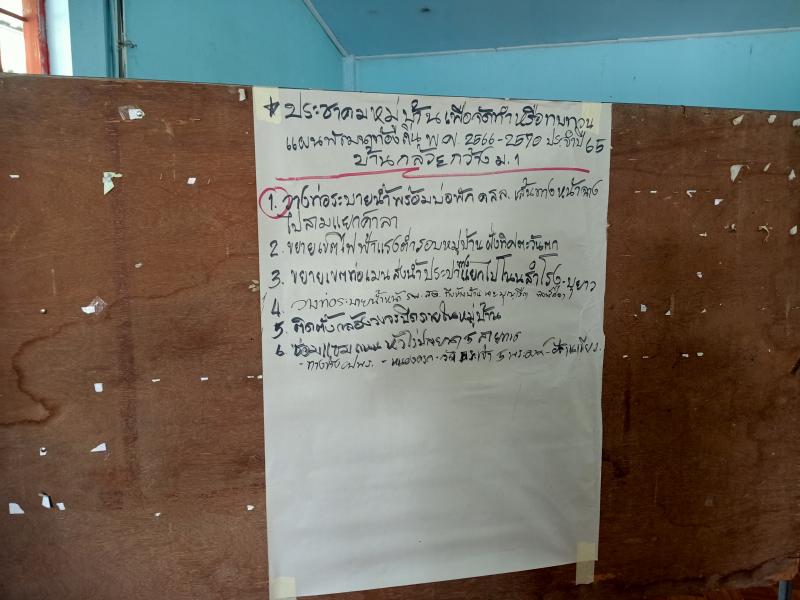 ประชาคมหมู่บ้านเพื่อจัดทำหรือทบทวน
แผนพัฒนาท้องถิ่น พ.ศ. 2566-2570 ประจำปี 65
บ้านกล้วยกว้าง ม.1
1. วางท่อระบายน้ำพร้อมบ่อพัก คสล. เส้นทางหน้า
ไปสามแยกศาลา
2. ขยายเขตไฟฟ้าแรงต่ำรอบหมู่บ้าน ฝั่งทิศตะวันตก
3. ขยายเขตท่อเมนส่งน้ำประปาแยกไปโนนสำโรง-บุยาว
4. วางท่อระบายน้ำหน้า รพ.สต. ถึง
5. ติดตั้งกล้องวงจรปิดภายในหมู่บ้าน
6. ซ่อมแซมถนน 5 สายทาง